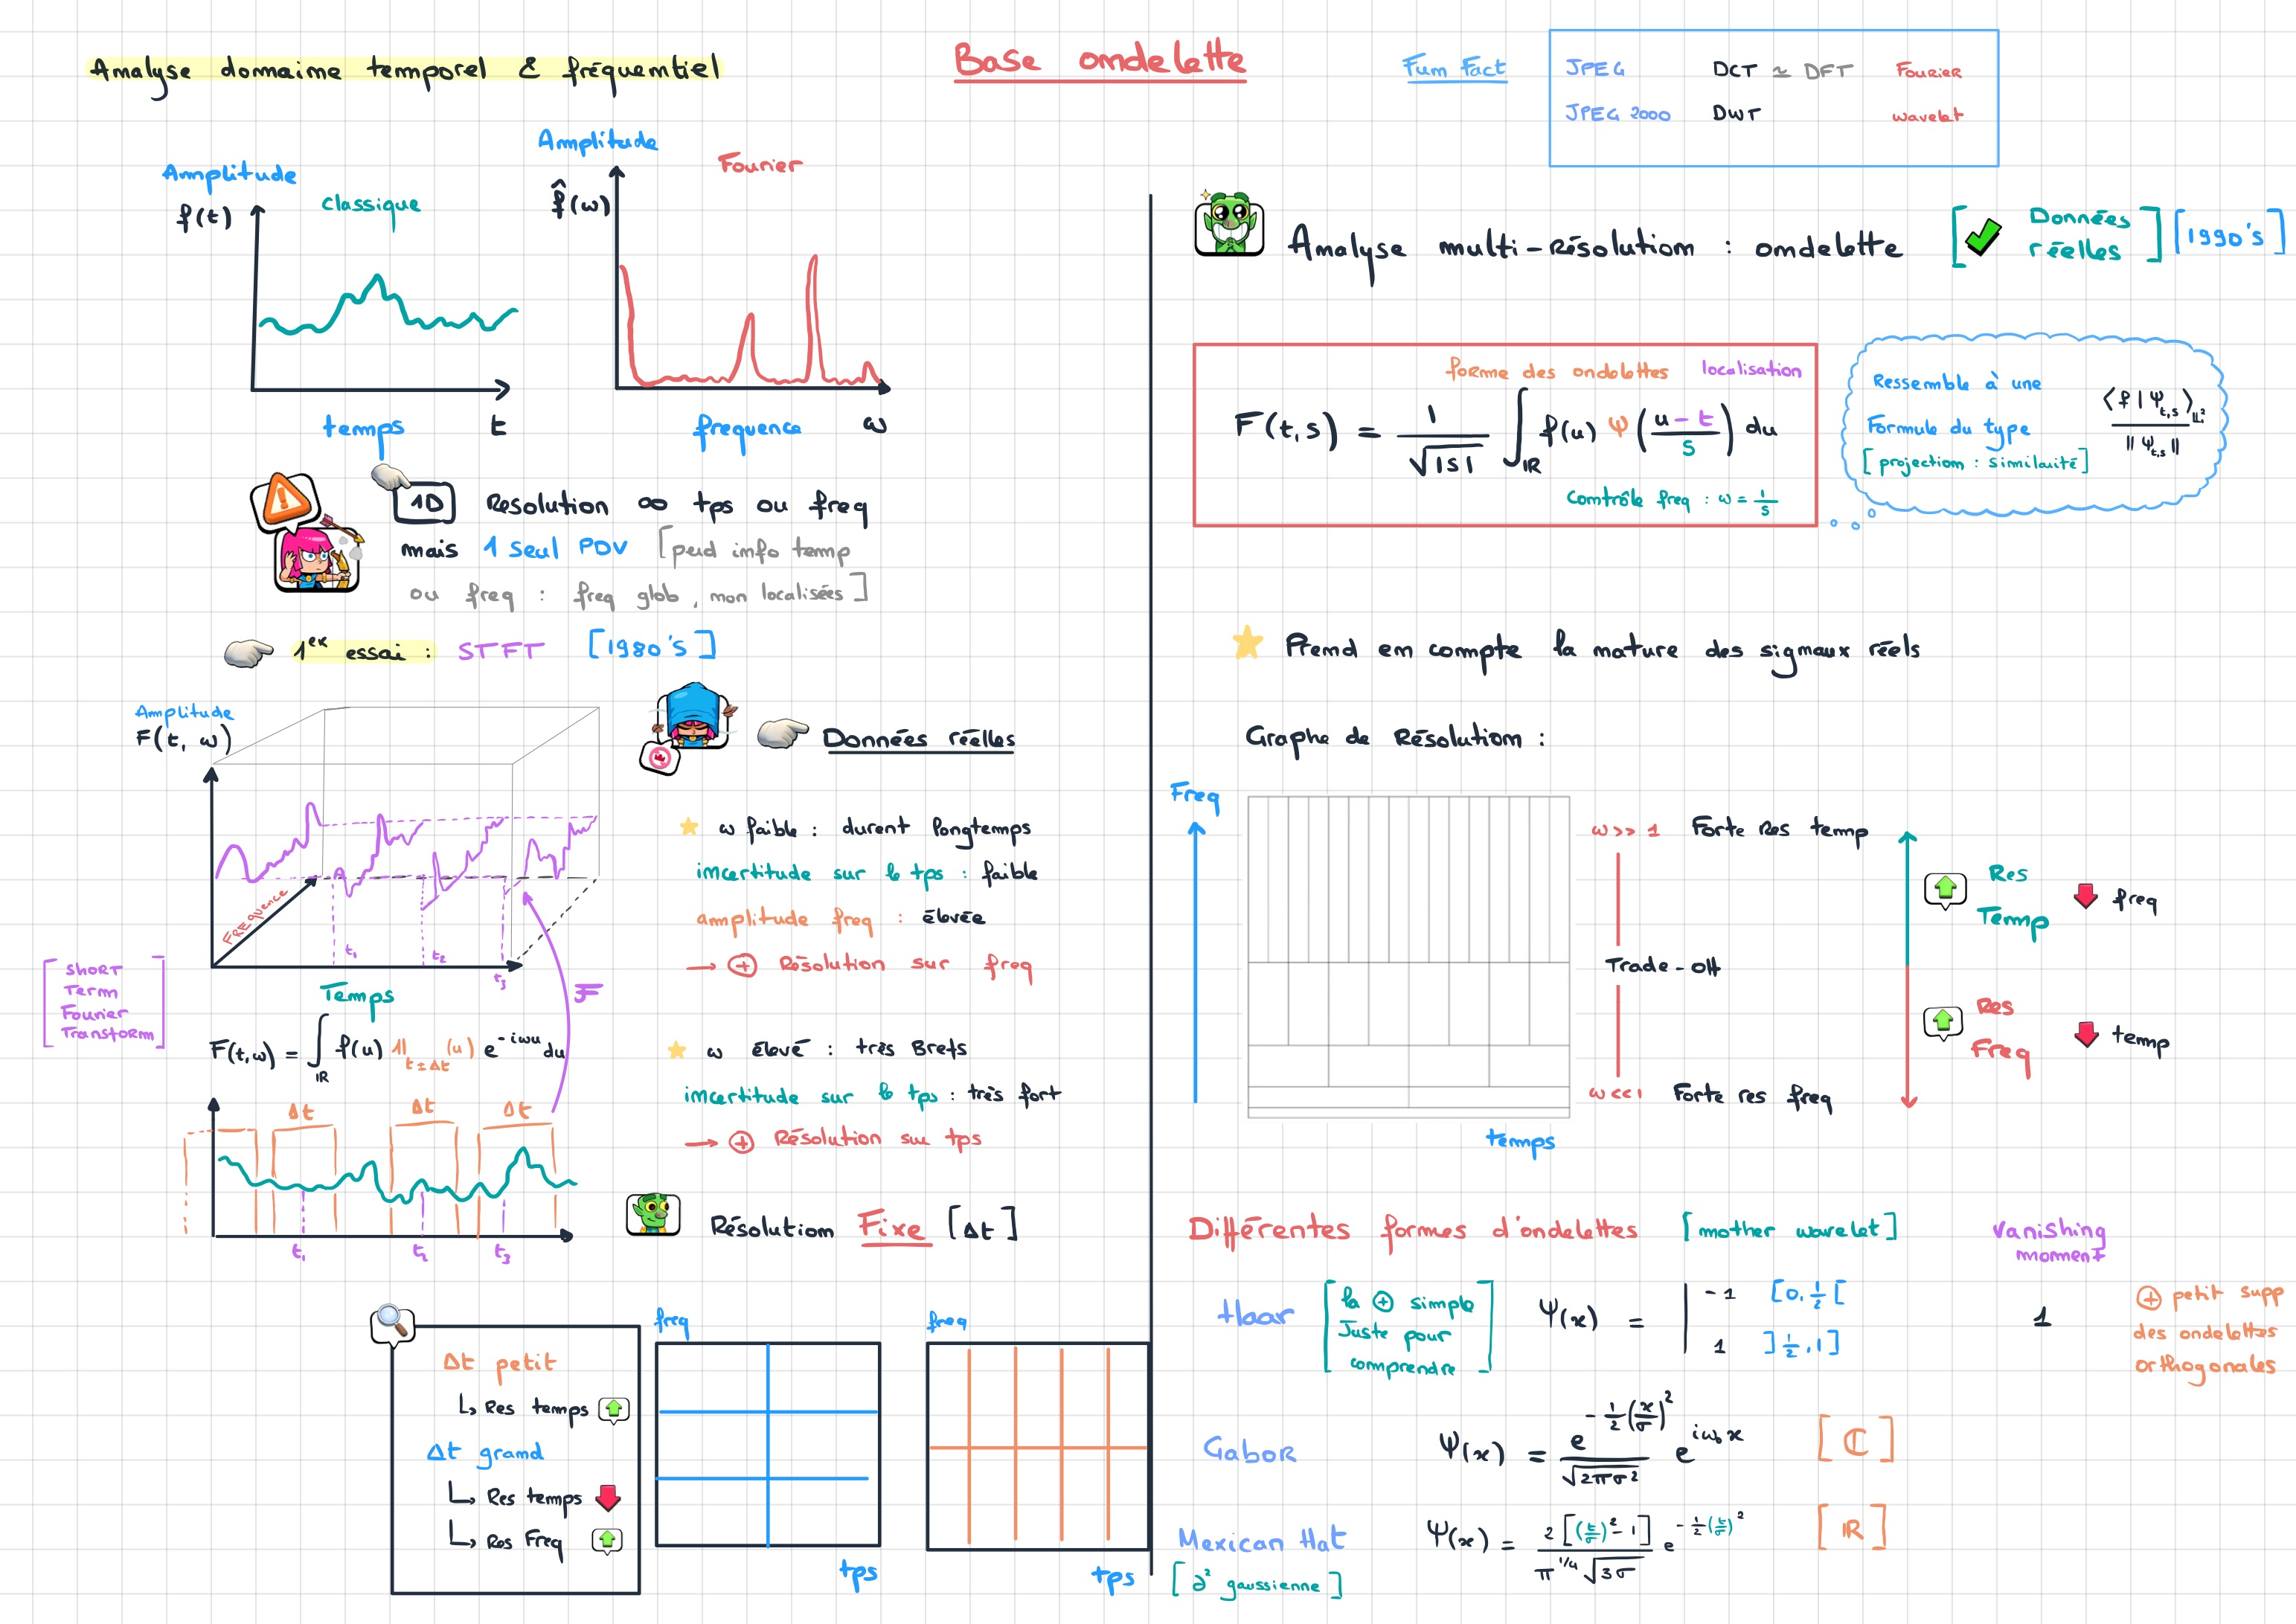 Analyse domaine temporel & fréquentiel
Base ondelette
Fun Fact
JPEG DCT ≃ DFT Fourier
JPEG 2000 DWT wavelet
Amplitude
f(t)
classique
temps
t
Amplitude
f̂(ω)
Fourier
frequence
ω
1D Resolution ∞ tps ou freq
mais 1 seul PDV [perd info temp
ou freq : freq glob, non localisées]
1er essai : STFT [1980's]
Amplitude
F(t, ω)
Frequence
t₁
t₂
t₃
Temps
[Short
Term
Fourier
Transform]
F
F(t,ω) = ∫_ℝ f(u) 𝟙_{t±Δt}(u) e^{-iωu} du
Δt Δt Δt
t₁ t₂ t₃
Données réelles
ω faible : durent longtemps
incertitude sur le tps : faible
amplitude freq : élevée
→ ⊕ Résolution sur freq
ω élevé : très Brefs
incertitude sur le tps : très fort
→ ⊕ Résolution sur tps
Résolution Fixe [Δt]
Δt petit
↳ Res temps
Δt grand
↳ Res temps
↳ Res Freq
freq
tps
freq
tps
Analyse multi-Résolution : ondelette
[Données
réelles]
[1990's]
forme des ondelettes localisation
F(t,s) = 1/√|s| ∫_ℝ f(u) ψ((u-t)/s) du
Contrôle freq : ω = 1/s
Ressemble à une
Formule du type
[projection : similarité]
⟨f|ψ_{t,s}⟩_{L²} / ||ψ_{t,s}||
Prend en compte la nature des signaux réels
Graphe de Résolution :
Freq
temps
ω >> 1 Forte Res temp
Trade-off
ω << 1 Forte res freq
Res
Temp
freq
Res
Freq
temp
Différentes formes d'ondelettes [mother wavelet]
Vanishing
moment
Haar
[la ⊕ simple
Juste pour
comprendre]
ψ(x) = | -1 [0, 1/2[
1 ]1/2, 1]
1
⊕ petit supp
des ondelettes
orthogonales
Gabor
ψ(x) = e^{-1/2 (x/σ)²} / √(2πσ²) e^{iω₀x}
[ℂ]
Mexican Hat
[∂² gaussienne]
ψ(x) = 2[(t/σ)² - 1] / (π^{1/4} √(3σ)) e^{-1/2 (t/σ)²}
[ℝ]